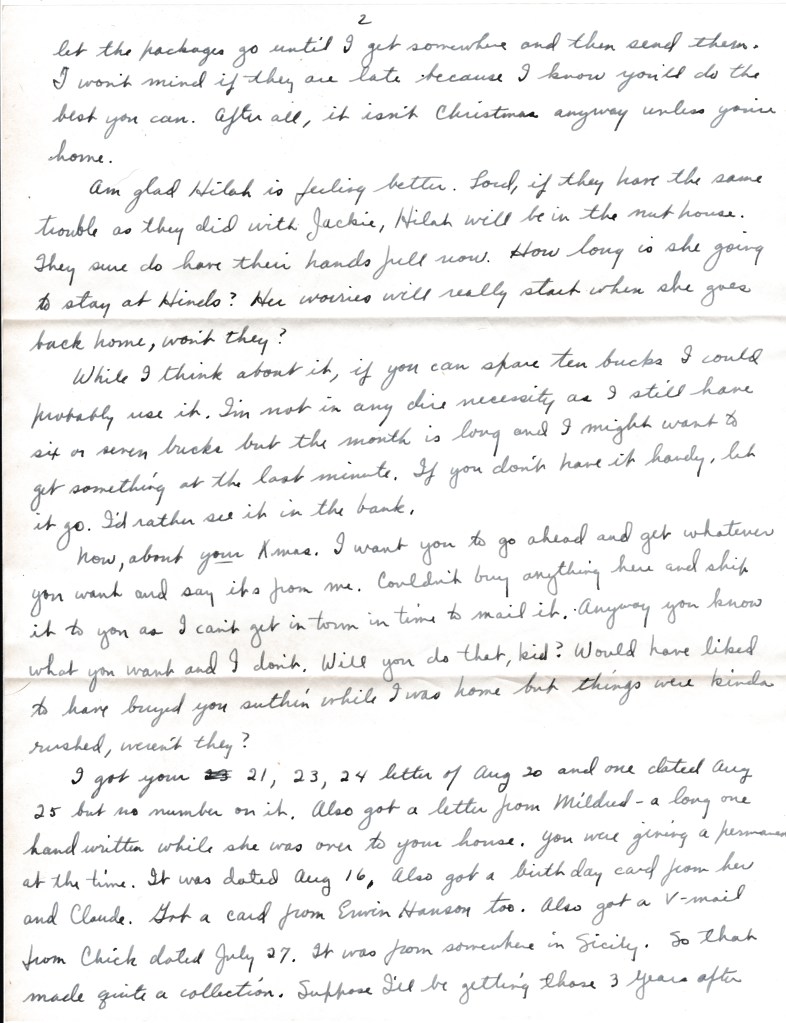 2
let the packages go until I get somewhere and then send them.
I won't mind if they are late because I know you'll do the
best you can. After all, it isn't Christmas anyway unless you're
home.
Am glad Hilah is feeling better. Lord, if they have the same
trouble as they did with Jackie, Hilah will be in the nut house.
They sure do have their hands full now. How long is she going
to stay at Hinds? Her worries will really start when she goes
back home, won't they?
While I think about it, if you can spare ten bucks I could
probably use it. I'm not in any dire necessity as I still have
six or seven bucks but the month is long and I might want to
get something at the last minute. If you don't have it handy, let
it go. I'd rather see it in the bank.
Now, about your Xmas. I want you to go ahead and get whatever
you want and say its from me. Couldn't buy anything here and ship
it to you as I can't get in town in time to mail it. Anyway you know
what you want and I don't. Will you do that, kid? Would have liked
to have buyed you suthin' while I was home but things were kinda
rushed, weren't they?
I got your 23 21, 23, 24 letter of Aug 20 and one dated Aug
25 but no number on it. Also got a letter from Mildred - a long one
hand written while she was over to your house. You were giving a permanen
at the time. It was dated Aug 16. Also got a birthday card from her
and Claude. Got a card from Erwin Hanson too. Also got a V-mail
from Chick dated July 27. It was from somewhere in Sicily. So that
made quite a collection. Suppose I'll be getting those 3 years after